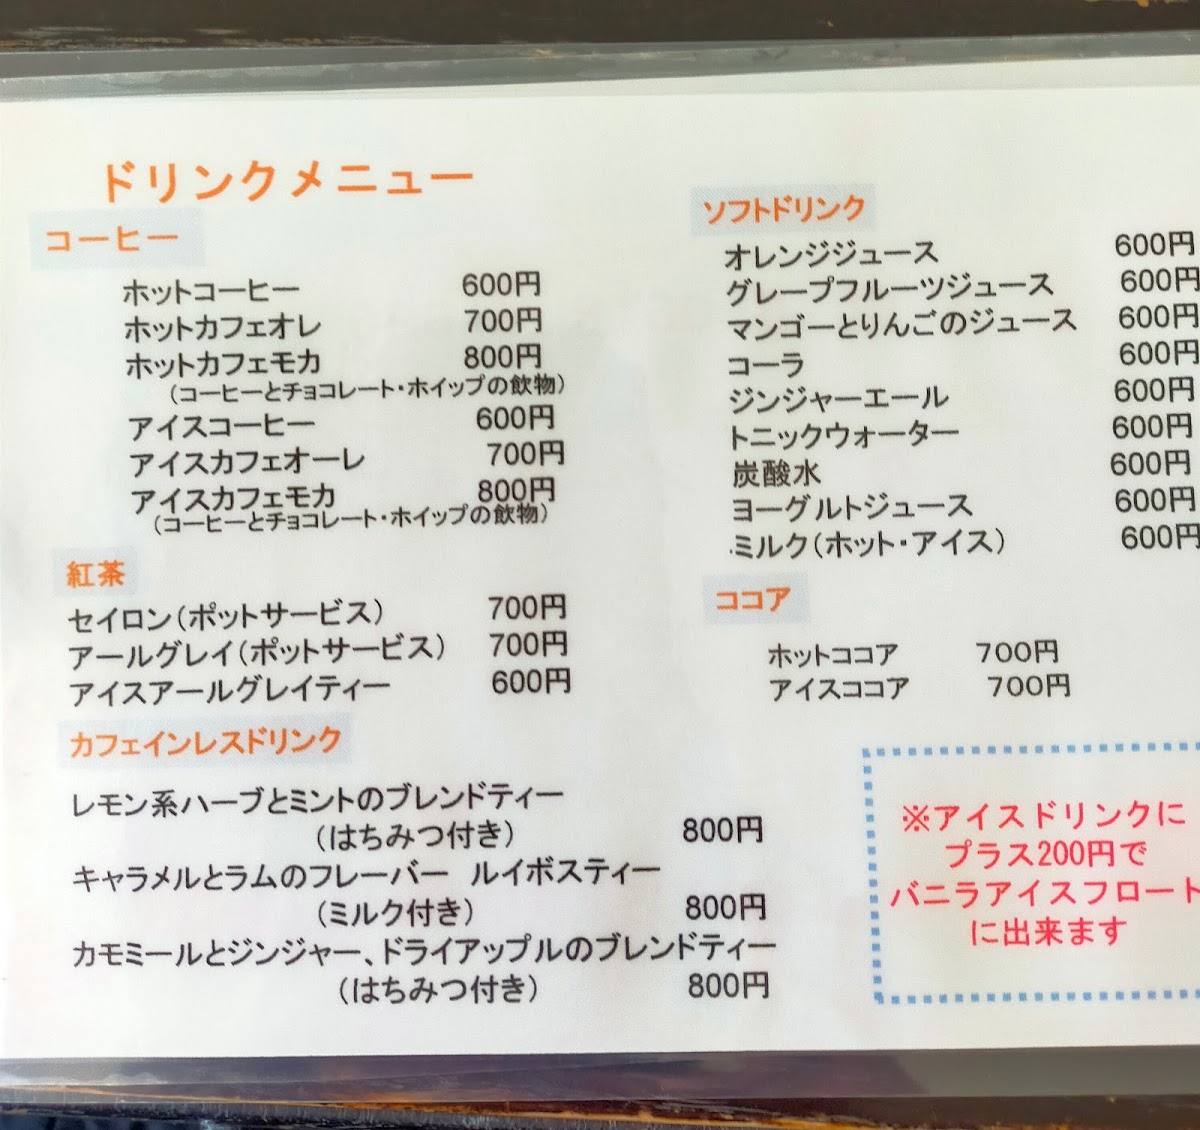 ドリンクメニュー
コーヒー
ホットコーヒー 600円
ホットカフェオレ 700円
ホットカフェモカ 800円
(コーヒーとチョコレート・ホイップの飲物)
アイスコーヒー 600円
アイスカフェオーレ 700円
アイスカフェモカ 800円
(コーヒーとチョコレート・ホイップの飲物)
紅茶
セイロン(ポットサービス) 700円
アールグレイ(ポットサービス) 700円
アイスアールグレイティー 600円
カフェインレスドリンク
レモン系ハーブとミントのブレンドティー
(はちみつ付き) 800円
キャラメルとラムのフレーバー ルイボスティー
(ミルク付き) 800円
カモミールとジンジャー、ドライアップルのブレンドティー
(はちみつ付き) 800円
ソフトドリンク
オレンジジュース 600円
グレープフルーツジュース 600円
マンゴーとりんごのジュース 600円
コーラ 600円
ジンジャーエール 600円
トニックウォーター 600円
炭酸水 600円
ヨーグルトジュース 600円
ミルク(ホット・アイス) 600円
ココア
ホットココア 700円
アイスココア 700円
※アイスドリンクに
プラス200円で
バニラアイスフロート
に出来ます